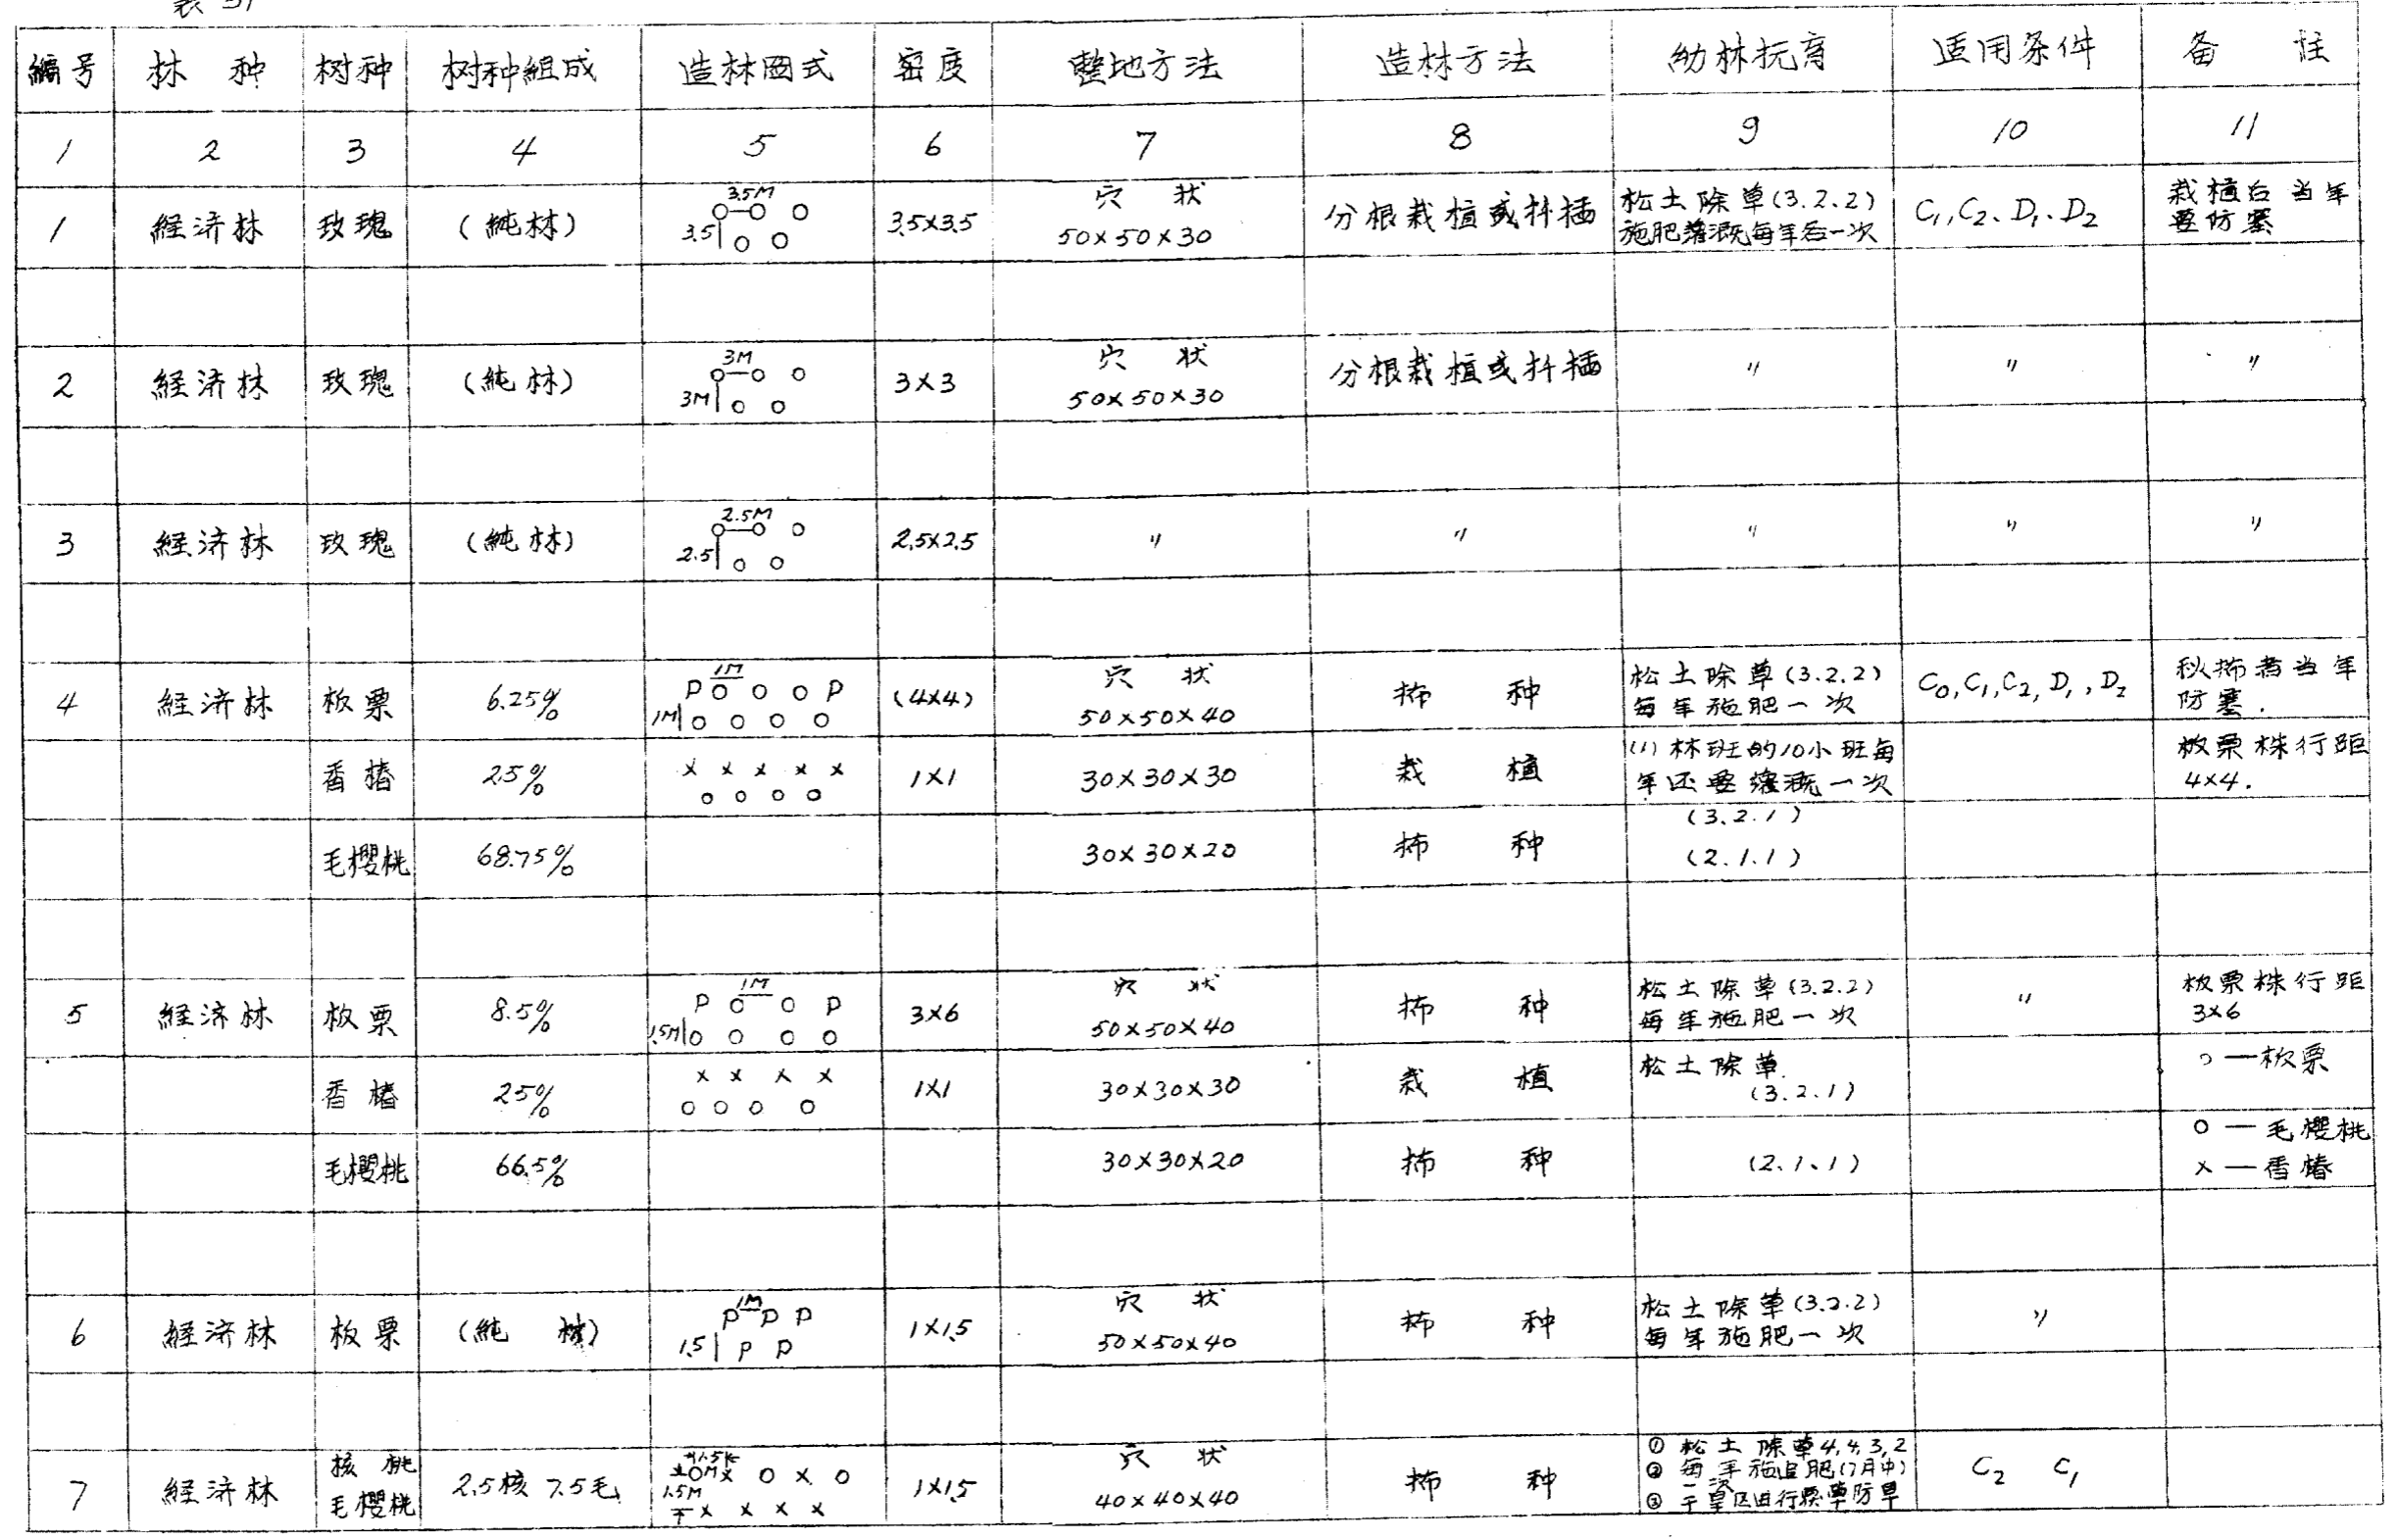 表 31
編号 林 种 树种 树种組成 造林図式 密度 整地方法 造林方法 幼林抚育 适用条件 备 註
1 2 3 4 5 6 7 8 9 10 11
1 経济林 玫瑰 (純林) 3.5M 3.5 3.5×3.5 穴 状 50×50×30 分根栽植或扦插 松土除草(3.2.2) 施肥灌溉每年各一次 C₁,C₂、D₁、D₂ 栽植后当年要防寒
2 経济林 玫瑰 (純林) 3M 3M 3×3 穴 状 50×50×30 分根栽植或扦插 〃 〃 〃
3 経济林 玫瑰 (純林) 2.5M 2.5 2.5×2.5 〃 〃 〃 〃 〃
4 経济林 板栗 6.25% 1M P O O O P 1M O O O O (4×4) 穴 状 50×50×40 播 种 松土除草(3.2.2) 每年施肥一次 C₀,C₁,C₂,D₁,D₂ 秋播者当年防寒.
香椿 25% × × × × × O O O O 1×1 30×30×30 栽 植 (1)林班的10小班每年还要灌溉一次 板栗株行距 4×4.
毛櫻桃 68.75% 30×30×20 播 种 (3.2.1) (2.1.1)
5 経济林 板栗 8.5% 1M P O O P 1.5M O O O O 3×6 穴 状 50×50×40 播 种 松土除草(3.2.2) 每年施肥一次 〃 板栗株行距 3×6
香椿 25% × × × × O O O O 1×1 30×30×30 栽 植 松土除草. (3.2.1) —板栗
毛櫻桃 66.5% 30×30×20 播 种 (2.1.1) O—毛櫻桃 ×—香椿
6 経济林 板栗 (純 林) 1M P P P 1.5 P P 1×1.5 穴 状 50×50×40 播 种 松土除草(3.2.2) 每年施肥一次 〃
7 経济林 核桃 毛櫻桃 2.5核 7.5毛 × O × O 1.5M × × × × 1×1.5 穴 状 40×40×40 播 种 ① 松土除草4,4,3,2 ② 每年施追肥(7月中)一次 ③ C₂ C₁